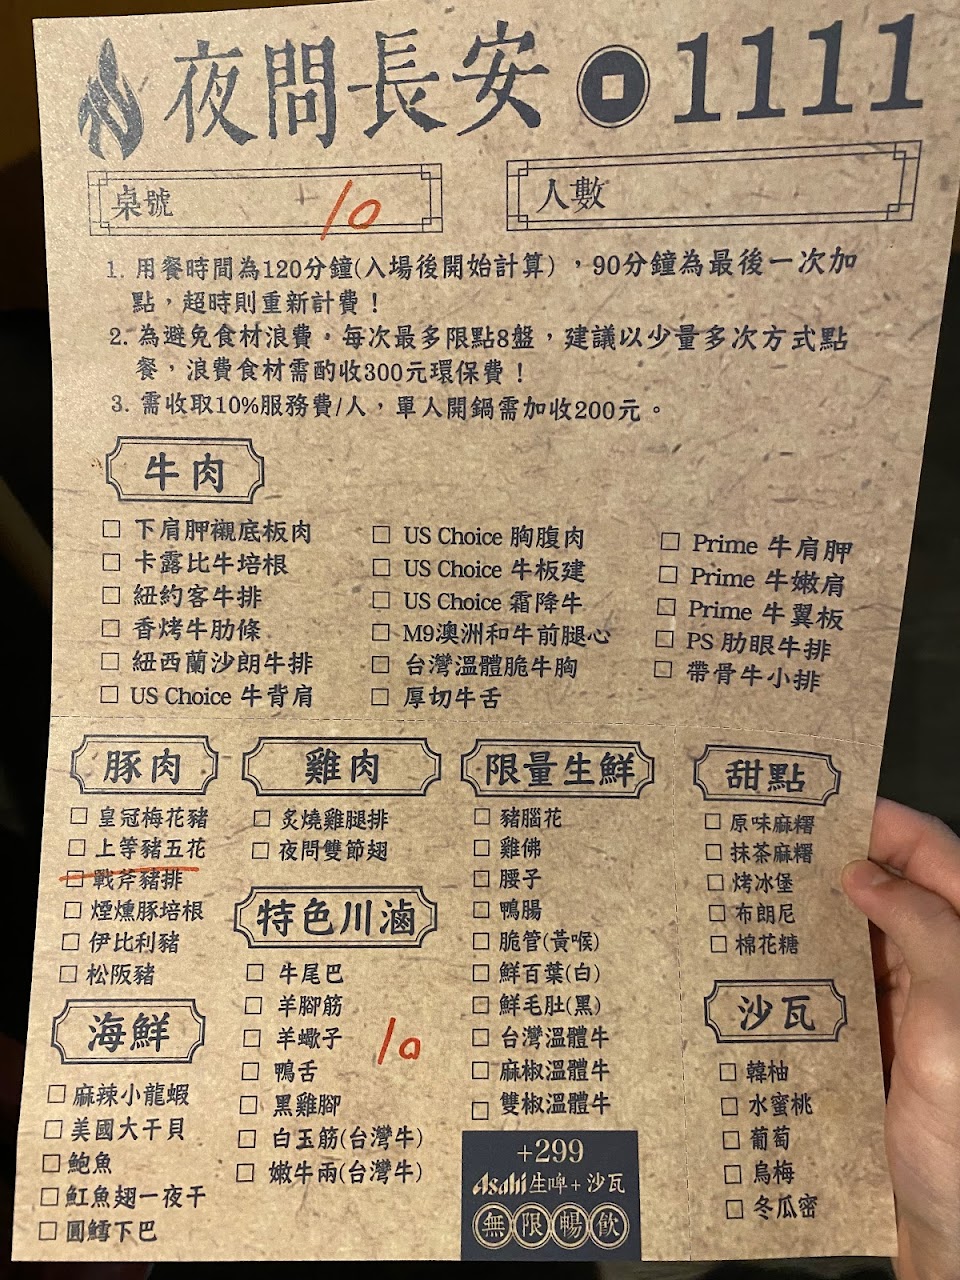 夜問長安 1111
桌號 10
人數
1. 用餐時間為120分鐘(入場後開始計算)，90分鐘為最後一次加
點，超時則重新計費！
2. 為避免食材浪費。每次最多限點8盤，建議以少量多次方式點
餐，浪費食材需酌收300元環保費！
3. 需收取10%服務費/人，單人開鍋需加收200元。
牛肉
□ 下肩胛襯底板肉
□ 卡露比牛培根
□ 紐約客牛排
□ 香烤牛肋條
□ 紐西蘭沙朗牛排
□ US Choice 牛背肩
□ US Choice 胸腹肉
□ US Choice 牛板建
□ US Choice 霜降牛
□ M9澳洲和牛前腿心
□ 台灣溫體脆牛胸
□ 厚切牛舌
□ Prime 牛肩胛
□ Prime 牛嫩肩
□ Prime 牛翼板
□ PS 肋眼牛排
□ 帶骨牛小排
豚肉
□ 皇冠梅花豬
□ 上等豬五花
□ 戰斧豬排
□ 煙燻豚培根
□ 伊比利豬
□ 松阪豬
海鮮
□ 麻辣小龍蝦
□ 美國大干貝
□ 鮑魚
□ 魟魚翅一夜干
□ 圓鱈下巴
雞肉
□ 炙燒雞腿排
□ 夜問雙節翅
特色川滷
□ 牛尾巴
□ 羊腳筋
□ 羊蠍子
□ 鴨舌
□ 黑雞腳
□ 白玉筋(台灣牛)
□ 嫩牛兩(台灣牛)
10
限量生鮮
□ 豬腦花
□ 雞佛
□ 腰子
□ 鴨腸
□ 脆管(黃喉)
□ 鮮百葉(白)
□ 鮮毛肚(黑)
□ 台灣溫體牛
□ 麻椒溫體牛
□ 雙椒溫體牛
+299
Asahi 生啤+沙瓦
無限暢飲
甜點
□ 原味麻糬
□ 抹茶麻糬
□ 烤冰堡
□ 布朗尼
□ 棉花糖
沙瓦
□ 韓柚
□ 水蜜桃
□ 葡萄
□ 烏梅
□ 冬瓜密